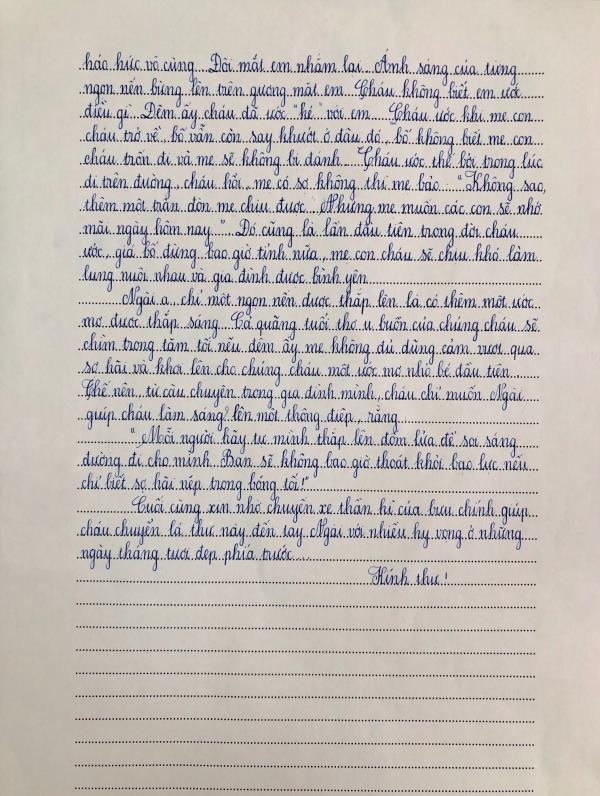 háo hức vô cùng. Đôi mắt em nhắm lại. Ánh sáng của từng
ngọn nến bừng lên trên gương mặt em. Cháu không biết em ước
điều gì. Đêm ấy cháu đã ước "ké" với em. Cháu ước khi mẹ con
cháu trở về, bố vẫn còn say khướt ở đâu đó, bố không biết mẹ con
cháu trốn đi và mẹ sẽ không bị đánh... Cháu ước thế bởi trong lúc
đi trên đường, cháu hỏi, mẹ có sợ không thì mẹ bảo: "Không sao,
thêm một trận đòn mẹ chịu được. Nhưng mẹ muốn các con sẽ nhớ
mãi ngày hôm nay". Đó cũng là lần đầu tiên trong đời cháu
ước, giá bố đừng bao giờ tỉnh nữa, mẹ con cháu sẽ chịu khó làm
lụng nuôi nhau và gia đình được bình yên.
Ngài ạ, chỉ một ngọn nến được thắp lên là có thêm một ước
mơ được thắp sáng. Cả quãng tuổi thơ u buồn của chúng cháu sẽ
chìm trong tăm tối nếu đêm ấy mẹ không đủ dũng cảm vượt qua
sợ hãi và khơi lên cho chúng cháu một ước mơ nhỏ bé đầu tiên.
Thế nên, từ câu chuyện trong gia đình mình, cháu chỉ muốn Ngài
giúp cháu làm sáng lên một thông điệp, rằng
"Mỗi người hãy tự mình thắp lên đốm lửa để soi sáng
đường đi cho mình. Bạn sẽ không bao giờ thoát khỏi bạo lực nếu
chỉ biết sợ hãi nép trong bóng tối!"
Cuối cùng xin nhờ chuyến xe thần kì của bưu chính giúp
cháu chuyển lá thư này đến tay Ngài với nhiều hy vọng ở những
ngày tháng tươi đẹp phía trước...
Kính thư!